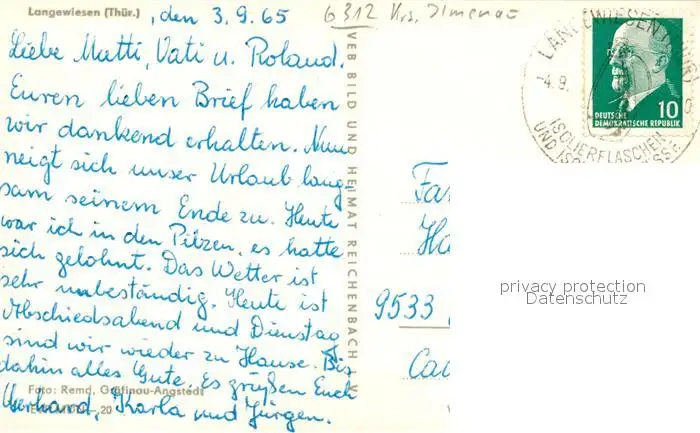 Langewiesen (Thür.)
, den 3.9.65
6312 Krs. Ilmenau
Liebe Mutti, Vati u. Roland.
Euren lieben Brief haben
wir dankend erhalten. Nun
neigt sich unser Urlaub lang-
sam seinem Ende zu. Heute
war ich in den Pilzen, es hatte
sich gelohnt. Das Wetter ist
sehr unbeständig. Heute ist
Abschiedsabend und Dienstag
sind wir wieder zu Hause. Bis
dahin alles Gute. Es grüßen Euch
Gerhard, Karla und Jürgen.
Foto: Remd, Gräfinau-Angstedt
20
VEB BILD UND HEIMAT REICHENBACH V
LANGEWIESEN (THÜR)
-4.9.
ISOLIERFLASCHEN
UND
10
DEUTSCHE
DEMOKRATISCHE REPUBLIK
Fa
Ha
9533
Ca
privacy protection
Datenschutz